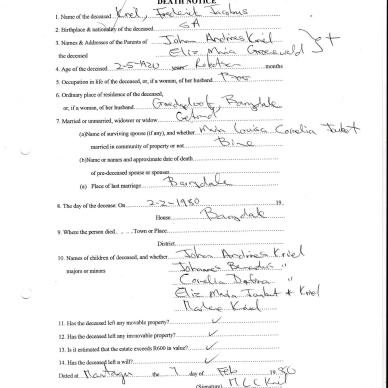 DEATH NOTICE
1. Name of the deceased Kriel, Frederik Jacobus
2. Birthplace & nationality of the deceased SA
3. Names & Addresses of the Parents of Johan Andries Kriel
the deceased Eliz Maria Groenewald
4. Age of the deceased 2-5-1920 months
5. Occupation in life of the deceased, or, if a woman, of her husband Boer
6. Ordinary place of residence of the deceased,
or, if a woman, of her husband Barrydale
7. Married or unmarried, widower or widow Getroud
(a)Name of surviving spouse (if any), and whether Louisa Cornelia Joubert
married in community of property or not Binne
(b)Name or names and approximate date of death
of pre-deceased spouse or spouses
(c) Place of last marriage Barrydale
8. The day of the decease: On 2-2-1980 19
House Barrydale
9. Where the person died. . . .Town or Place
District
10. Names of children of deceased, and whether Johan Andries Kriel
majors or minors Johannes "
Cornelia "
Eliz Maria Joubert * Kriel
Kriel
11. Has the deceased left any movable property? ✓
12. Has the deceased left any immovable property? ✓
13. Is it estimated that the estate exceeds R600 in value? ✓
14. Has the deceased left a will? ✓
Dated at Montagu the 7 day of Feb 1980
(Signature) M L C Kriel